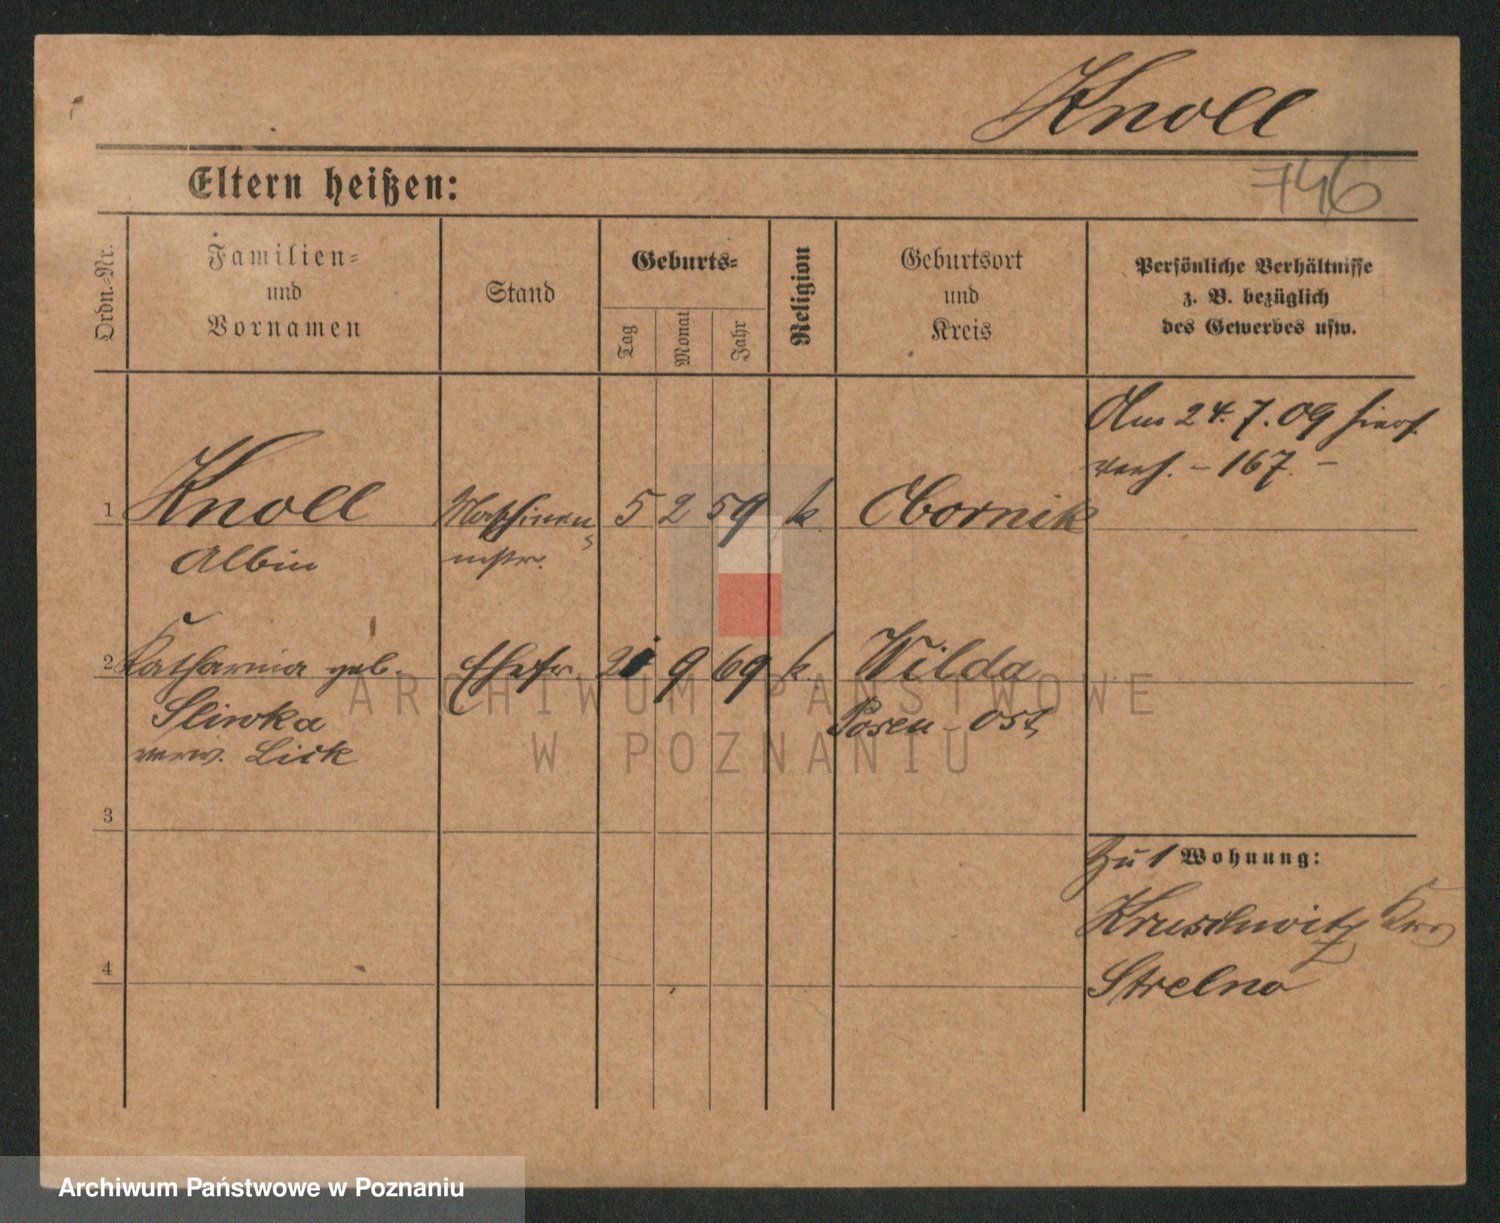 Knoll
Eltern heißen:
746
Ordn.-Nr.
Familien-
und
Vornamen
Stand
Geburts-
Tag
Monat
Jahr
Religion
Geburtsort
und
Kreis
Persönliche Verhältnisse
z. B. bezüglich
des Gewerbes usw.
Am 24.7.09 hiers.
verh. – 167. –
1 Knoll Maschinen 5 2 59 k. Obornik
Albin mstr.
2 Katharina geb. Ehefr. 9 69 k. Wilda
Sliwka Posen-Ost
verw. Lick
3
4
zu 1 Wohnung:
Kruschwitz Krs
Strelno
ARCHIWUM PAŃSTWOWE
W POZNANIU
Archiwum Państwowe w Poznaniu